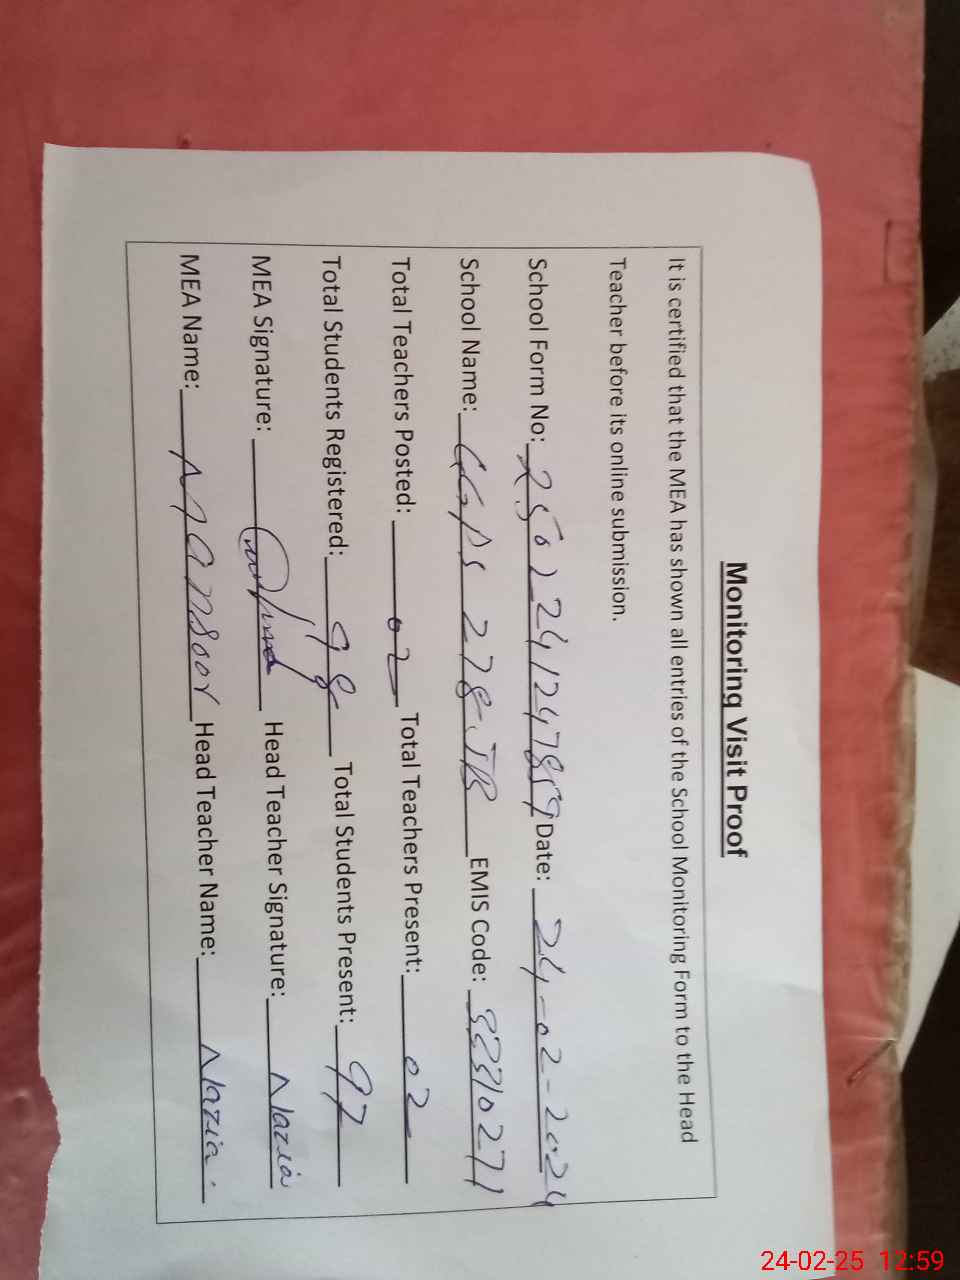 Monitoring Visit Proof
It is certified that the MEA has shown all entries of the School Monitoring Form to the Head
Teacher before its online submission.
School Form No: 250224124789 Date: 24-02-2024
School Name: GGPS 278-JB EMIS Code: 33310271
Total Teachers Posted: 02 Total Teachers Present: 02
Total Students Registered: 98 Total Students Present: 97
MEA Signature: Head Teacher Signature: Nazia
MEA Name: Mansoor Head Teacher Name: Nazia
24-02-25 12:59